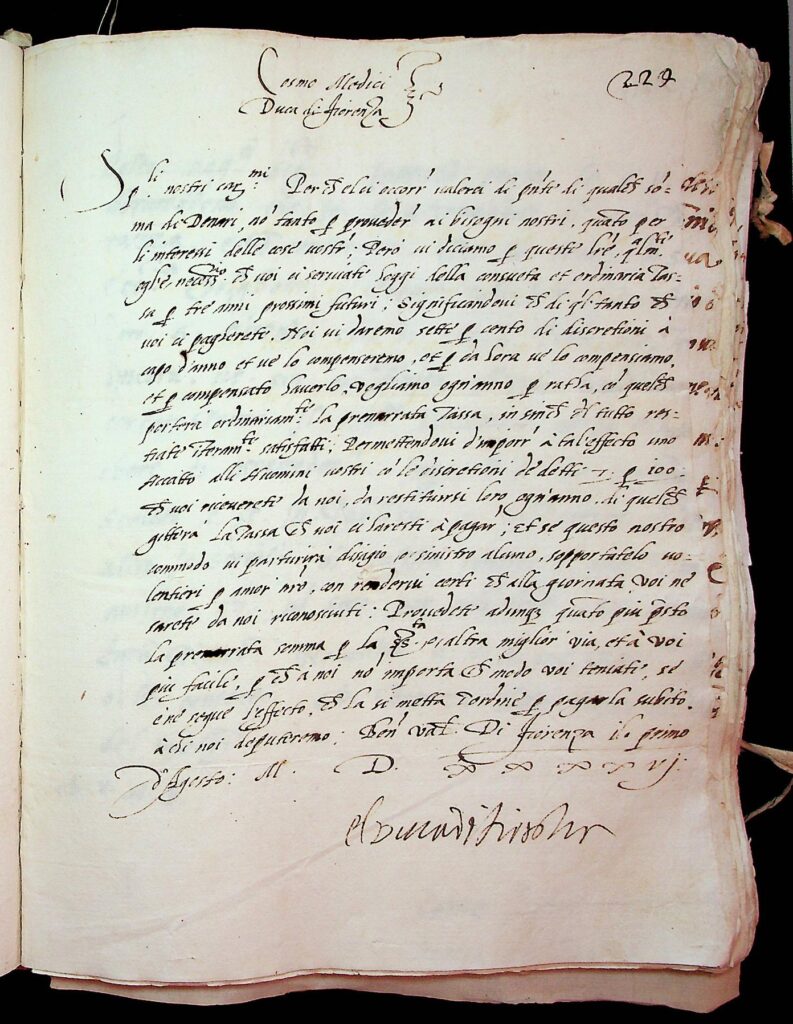 Cosmo Medici
Duca di Fiorenza
229
Sp.li nostri car.mi Perche el ci occorr' valerci di pnte di qualch sō-
ma di Denari, nō tanto p proveder' ai bisogni nostri, quāto per
li interessi delle cose vostr'; Però vi diciamo p queste lre,
che voi ci serviate Oggi della consueta et ordinaria Tas-
sa p tre anni prossimi futuri; Significandovi ch di q̄l tanto ch
voi ci pagherete, Noi vi daremo sette p cento di discretioni à
capo d'anno et ve lo compenseremo, et p da hora ve lo compensiamo,
et p compensato haverlo, vogliamo ogn'anno p ratha, cō quelch
porterà ordinariam.te la prenarrata Tassa, in sin ch del tutto res-
tiate satisfatti; Permettendovi d'imporr' à tal'effecto uno
Accatto alli Huomini vostri cō le discretioni de detti 7 p 100
ch voi riceverete da noi, da restituirsi loro ogn'anno, di quelch
gitterà La Tassa ch voi ci haresti à pagar'; Et se questo nostro
commodo vi parturirà disagio o sinistro alcuno, sopportatelo vo-
lentieri p amor nro, con rendervi certi ch alla giornata voi ne
sarete da noi riconosciuti: Provedete adunq quāto più p̄sto
la prenarrata somma p la o altra miglior via, et à voi
più facile, p ch à noi nō importa ch modo voi teniate, se
e ne segue l'effecto, ch la si metta ordine p pagarla subito
à chi noi deputeremo; Ben' val.te Di Fiorenza il primo
d'Agosto: M. D. XXXXVJ:
el duca di fiorenza